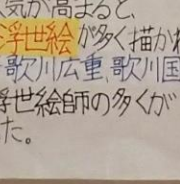 気が高まると、
浮世絵が多く描かれ
歌川広重、歌川国
浮世絵師の多くが
た。